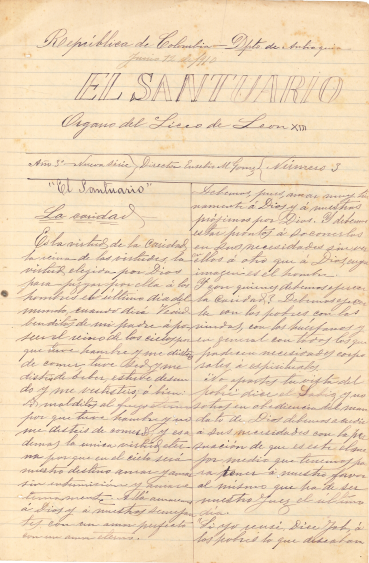 República de Colombia - Dpto de Antioquia
Junio 12 de
EL SANTUARIO
Organo del Liceo de Leon XIII
Año 3º - Nueva serie) Director Eusebio M. Gomez (Número 3
"El Santuario"
La caridad
Es la virtud de la Caridad
la reina de las virtudes, la
virtud elegida por Dios
para juzgar por ella á los
hombres en el último dia del
mundo, cuando dirá Venid
benditos de mi padre á po-
seer el reino de los cielos por
que tuve hambre y me disteis
de comer, tuve sed y me
disteis de beber, estuve desnu-
do y me vestisteis, ó bien:
Id malditos al fuego eterno
por que tuve hambre y no
me disteis de comer, y es a-
demas la unica virtud eter-
na por que en el cielo será
nuestro destino amar y amar
sin intermision y amar e-
ternamente. Allá amaremos
á Dios y á nuestros semejan-
tes con un amor perfecto
con un amor eterno.
Debemos, pues, amar
á Dios y á nuestros
prójimos por Dios. Y debemos
estar prontos á socorrerlos
en sus necesidades sin ver
en ellos á otro que á Dios, cuya
imagen es el hombre.
Y con quienes debemos ejercer
la caridad? Debemos ejercer-
la con los pobres con las
viudas, con los huerfanos y
en general con todos los que
padecen necesidades corpo-
rales ó espirituales.
No apartes tu vista del
pobre dice el Sabio, y no-
sotros en obediencia del man-
dato de Dios debemos acudir
á sus necesidades con la per-
suasion de que es este el me-
jor medio que tenemos pa-
ra tener á nuestro favor
al mismo que ha de ser
nuestro juez el último
dia.
Si yo negué, dice Job, á
los pobres lo que deseaban